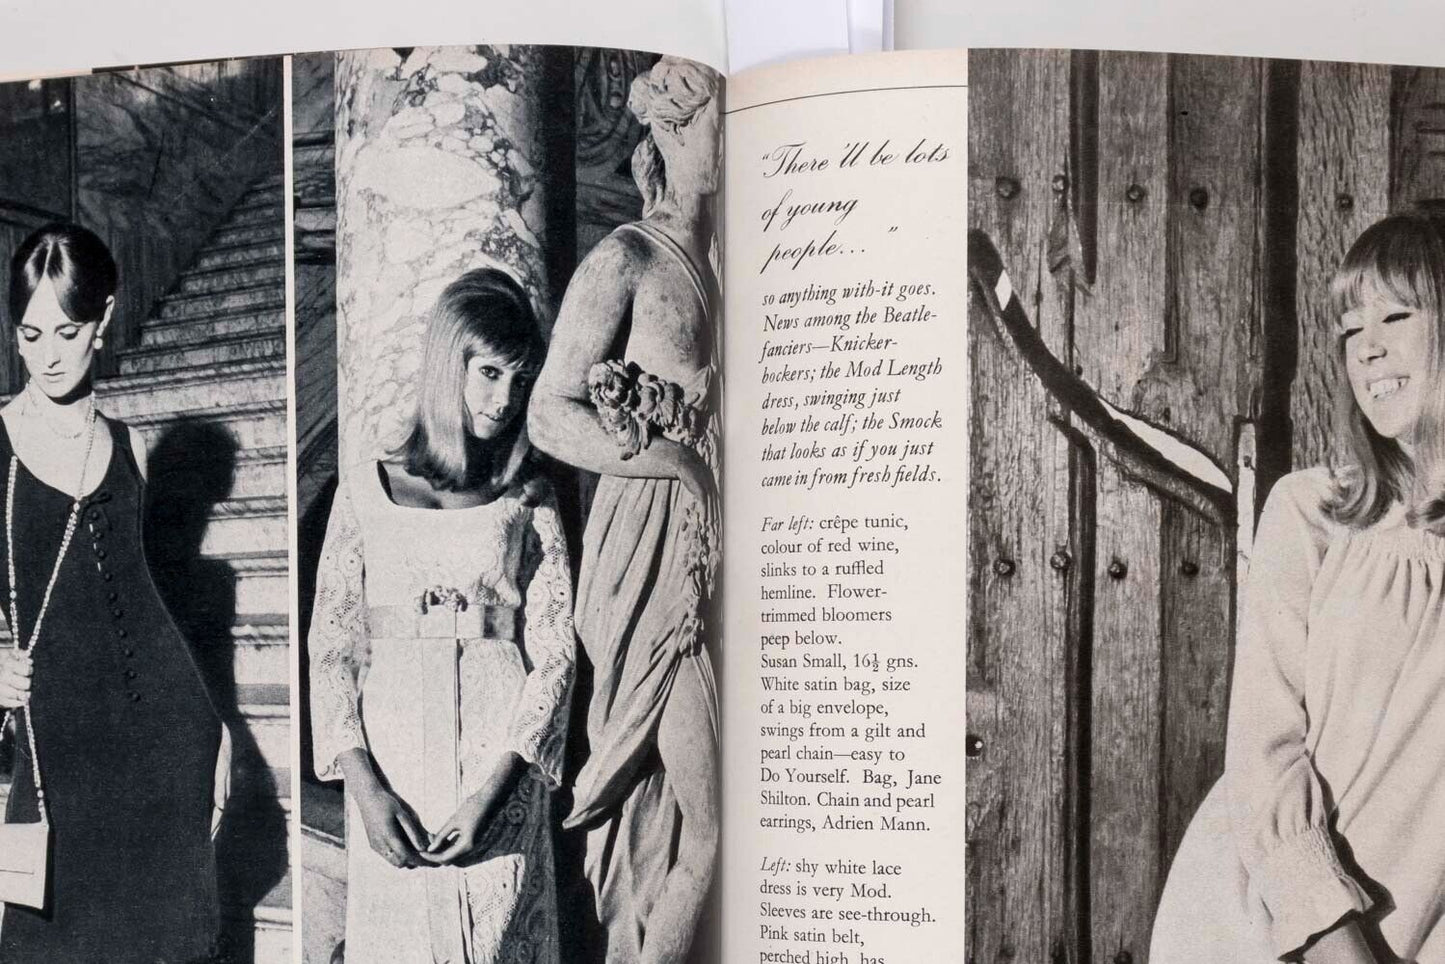 "There'll be lots
of young
people... "
so anything with-it goes.
News among the Beatle-
fanciers—Knicker-
bockers; the Mod Length
dress, swinging just
below the calf; the Smock
that looks as if you just
came in from fresh fields.
Far left: crêpe tunic,
colour of red wine,
slinks to a ruffled
hemline. Flower-
trimmed bloomers
peep below.
Susan Small, 16½ gns.
White satin bag, size
of a big envelope,
swings from a gilt and
pearl chain—easy to
Do Yourself. Bag, Jane
Shilton. Chain and pearl
earrings, Adrien Mann.
Left: shy white lace
dress is very Mod.
Sleeves are see-through.
Pink satin belt,
perched high, has